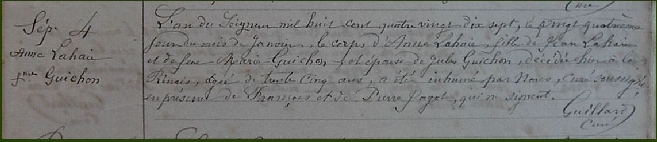 Sép. 4
Anne Lahaie
fme Guichon
L'an du Seigneur mil huit cent quatre vingt dix sept, le vingt quatrième
jour du mois de Janvier, le corps d'Anne Lahaie, fille de Jean Lahaie
et de feue Marie Guichon, et épouse de Jules Guichon, décédée hier à le
, âgée de trente cinq ans, a été inhumé par Nous, Curé soussigné
en présence de François et de Pierre Jagot, qui ne signent.
Guillard
Curé